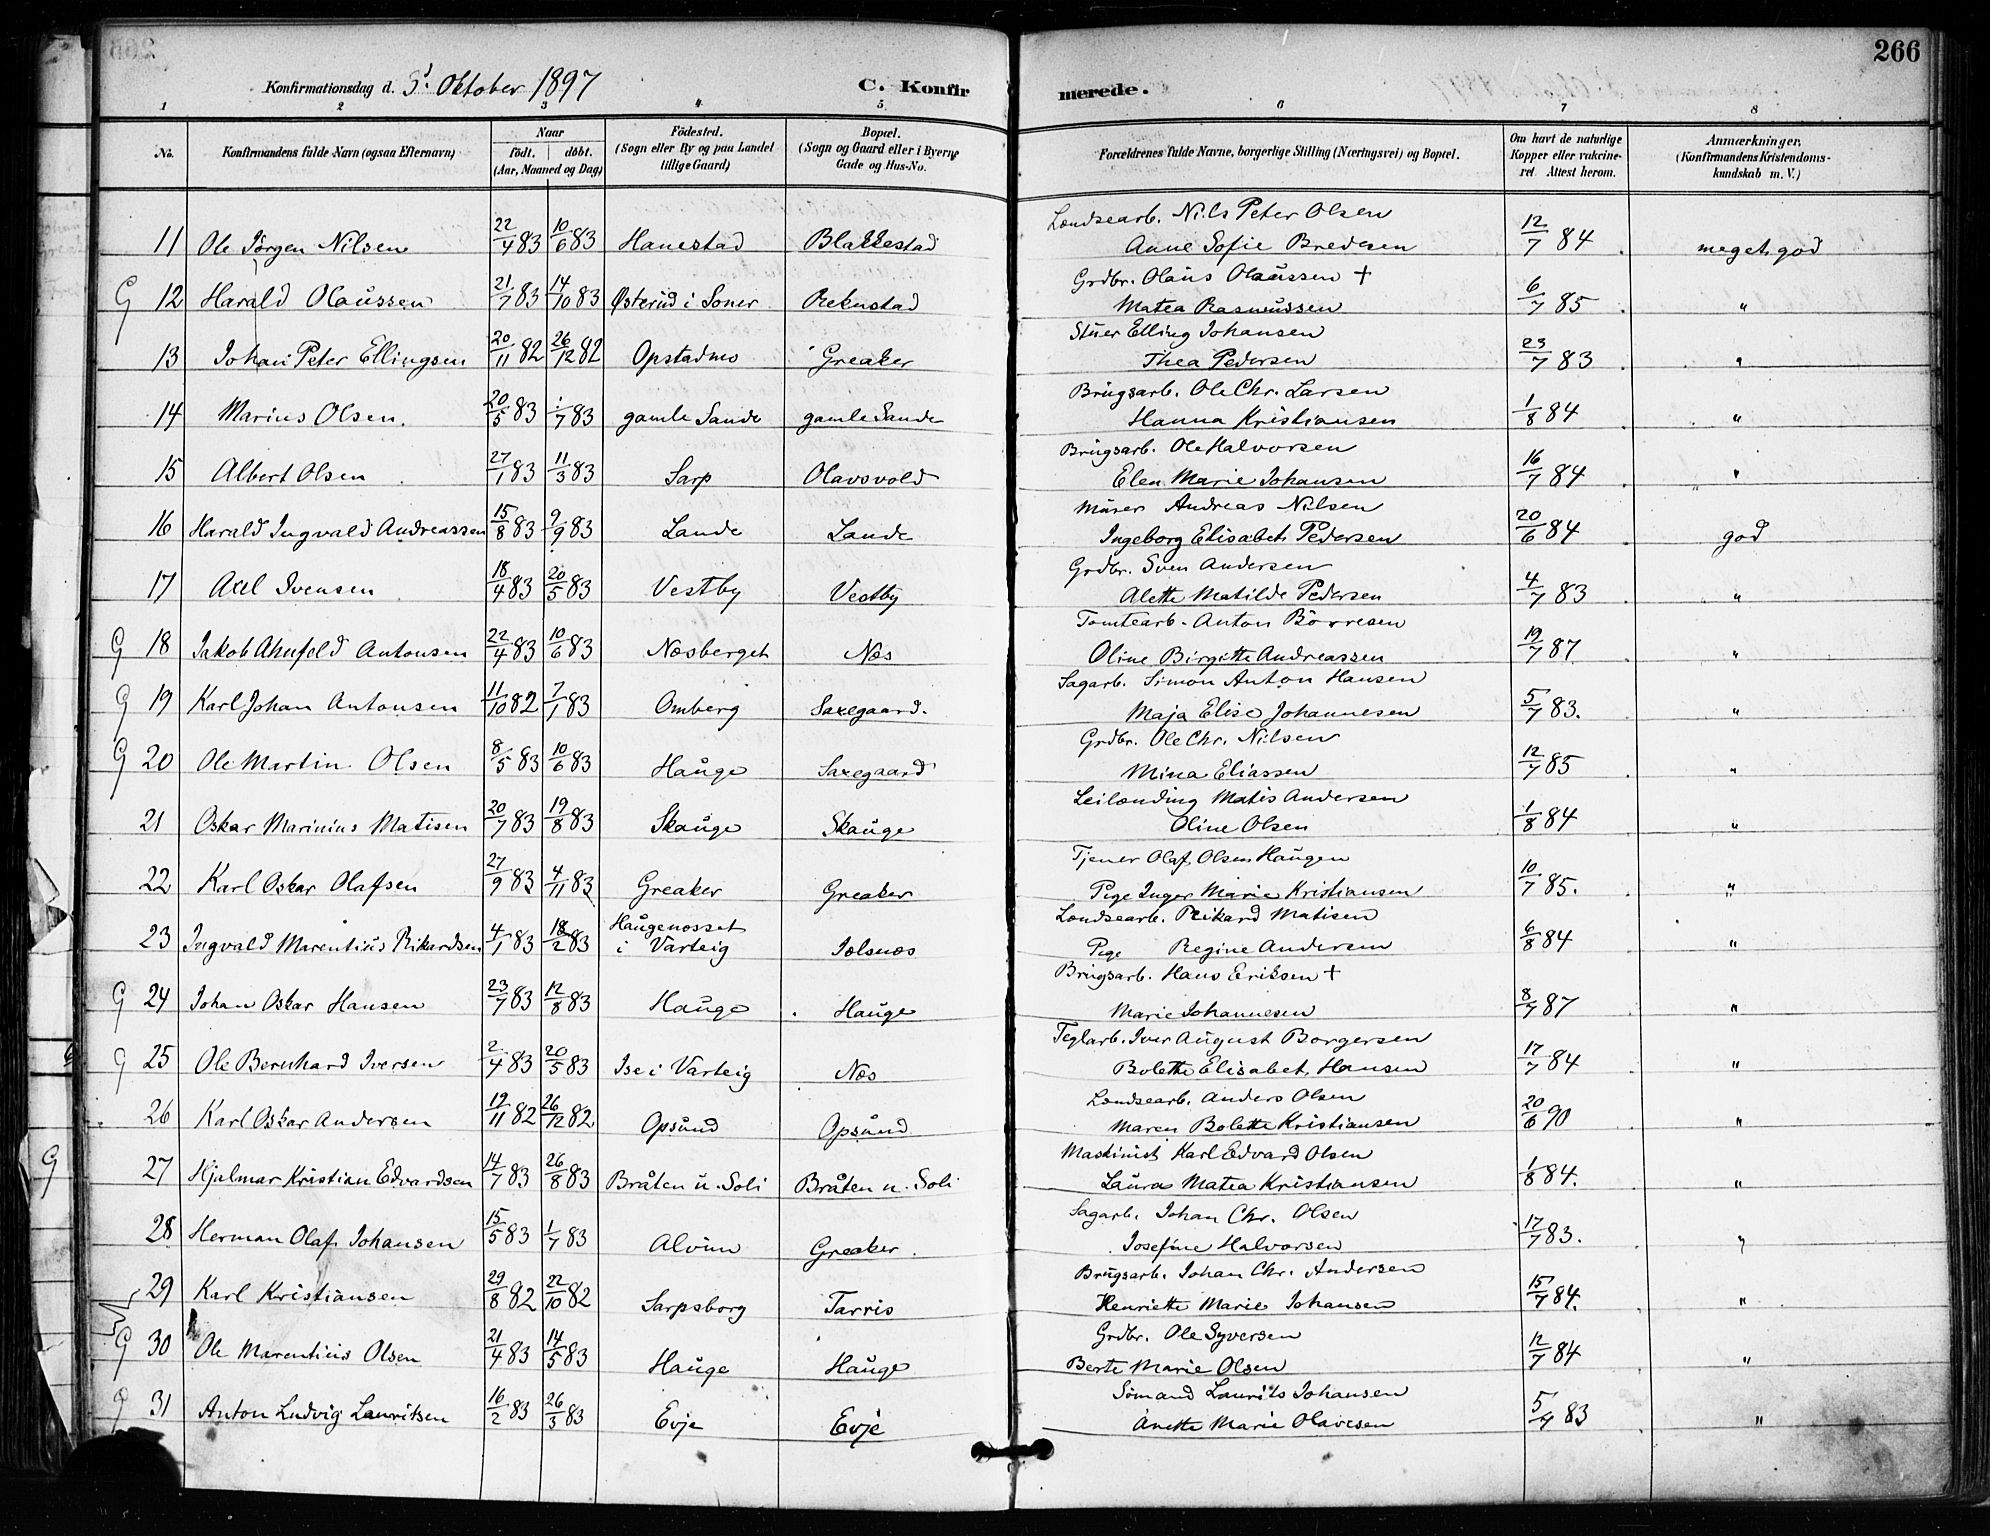 266
Konfirmationsdag d. 3' Oktober 1897 C. Konfirmerede.
1 2 3 4 5 6 7 8
No. Konfirmandens fulde Navn (ogsaa Efternavn) Naar födt. döbt. (Aar, Maaned og Dag) Födested. (Sogn eller By og paa Landet tillige Gaard) Bopæl. (Sogn og Gaard eller i Byerne Gade og Hus-No. Forældrenes fulde Navne, borgerlige Stilling (Næringsvei) og Bopæl. Om havt de naturlige Kopper eller vakcineret. Attest herom. Anmærkninger. (Konfirmandens Kristendomskundskab m. V.)
Landsearb. Nils Peter Olsen
11 Ole Jörgen Nilsen 22/4 83 10/6 83 Hanestad Blakkestad Anne Sofie Bredesen 12/7 84 meget god
Grdbr. Olaus Olaussen +
G 12 Harald Olaussen 21/7 83 14/10 83 Østerud i Soner Rekustad Matea Rasmussen 6/7 85 "
Stuer Elling Johansen
13 Johan Peter Ellingsen 20/11 82 26/12 82 Opstadmo Greaker Thea Pedersen 23/7 83 "
Brugsarb. Ole Chr. Larsen
14 Marius Olsen. 20/5 83 1/7 83 gamle Sande gamle Sande Hanna Kristiansen 1/8 84 "
Brugsarb. Ole Halvorsen
15 Albert Olsen 27/1 83 11/3 83 Sarp Olavsvold Elen Marie Johansen 16/7 84 "
Murer Andreas Nilsen
16 Harald Ingvald Andreassen 15/8 83 9/9 83 Lande Lande Ingeborg Elisabet Pedersen 20/6 84 god
Grdbr. Sven Andersen
17 Axel Svensen 18/4 83 20/5 83 Vestby Vestby Alette Matilde Pedersen 4/7 83 "
Tomtearb. Anton Börresen
G 18 Jakob Ahnfeld Antonsen 22/4 83 10/6 83 Næsberget Næs Oline Birgitte Andreassen 19/7 87 "
Sagarb. Simon Anton Hansen
G 19 Karl Johan Antonsen 11/10 82 7/1 83 Omberg Saxegaard. Maja Elise Johannesen 5/7 83. "
Grdbr. Ole Chr. Nilsen
G 20 Ole Martin Olsen 8/5 83 10/6 83 Hauge Saxegaard Mina Eliassen 12/7 85 "
Leilænding Matis Andersen
21 Oskar Marinius Matisen 20/7 83 19/8 83 Skauge Skauge Oline Olsen 1/8 84 "
Tjener Olaf Olsen Haugen
22 Karl Oskar Olafsen 27/9 83 4/11 83 Greaker Greaker Pige Inger Marie Kristiansen 10/7 85. "
Haugenosset Landsearb. Rikard Matisen
23 Ingvald Marentius Rikardsen 4/1 83 18/2 83 i Varteig Jelsnæs Pige Regine Andersen 6/8 84 "
Brugsarb. Hans Eriksen +
G 24 Johan Oskar Hansen 23/7 83 12/8 83 Hauge Hauge Marie Johannesen 8/7 87 "
Teglarb. Iver August Borgersen
G 25 Ole Bernhard Iversen 2/4 83 20/5 83 Ise i Varteig Næs Bolette Elisabet Hansen 17/7 84 "
Landsearb. Anders Olsen
26 Karl Oskar Andersen 19/11 82 26/12 82 Opsund Opsund Maren Bolette Kristiansen 20/6 90 "
Maskinist Karl Edvard Olsen
G 27 Hjalmar Kristian Edvardsen 14/7 83 26/8 83 Bråten u. Soli Bråten u. Soli Laura Matea Kristiansen 1/8 84. "
Sagarb. Johan Chr. Olsen
28 Herman Olaf Johansen 15/5 83 1/7 83 Alvim Greaker. Josefine Halvorsen 17/7 83. "
Brugsarb. Johan Chr. Andersen
29 Karl Kristiansen 29/8 82 22/10 82 Sarpsborg Tarris Henriette Marie Johansen 15/7 84. "
Grdbr. Ole Syversen
G 30 Ole Marentius Olsen 21/4 83 14/5 83 Hauge Hauge Berte Marie Olsen 12/7 84 "
Sömand Laurits Johansen
G 31 Anton Ludvig Lauritsen 16/2 83 26/3 83 Evje Evje Anette Marie Olavesen 5/7 83 "